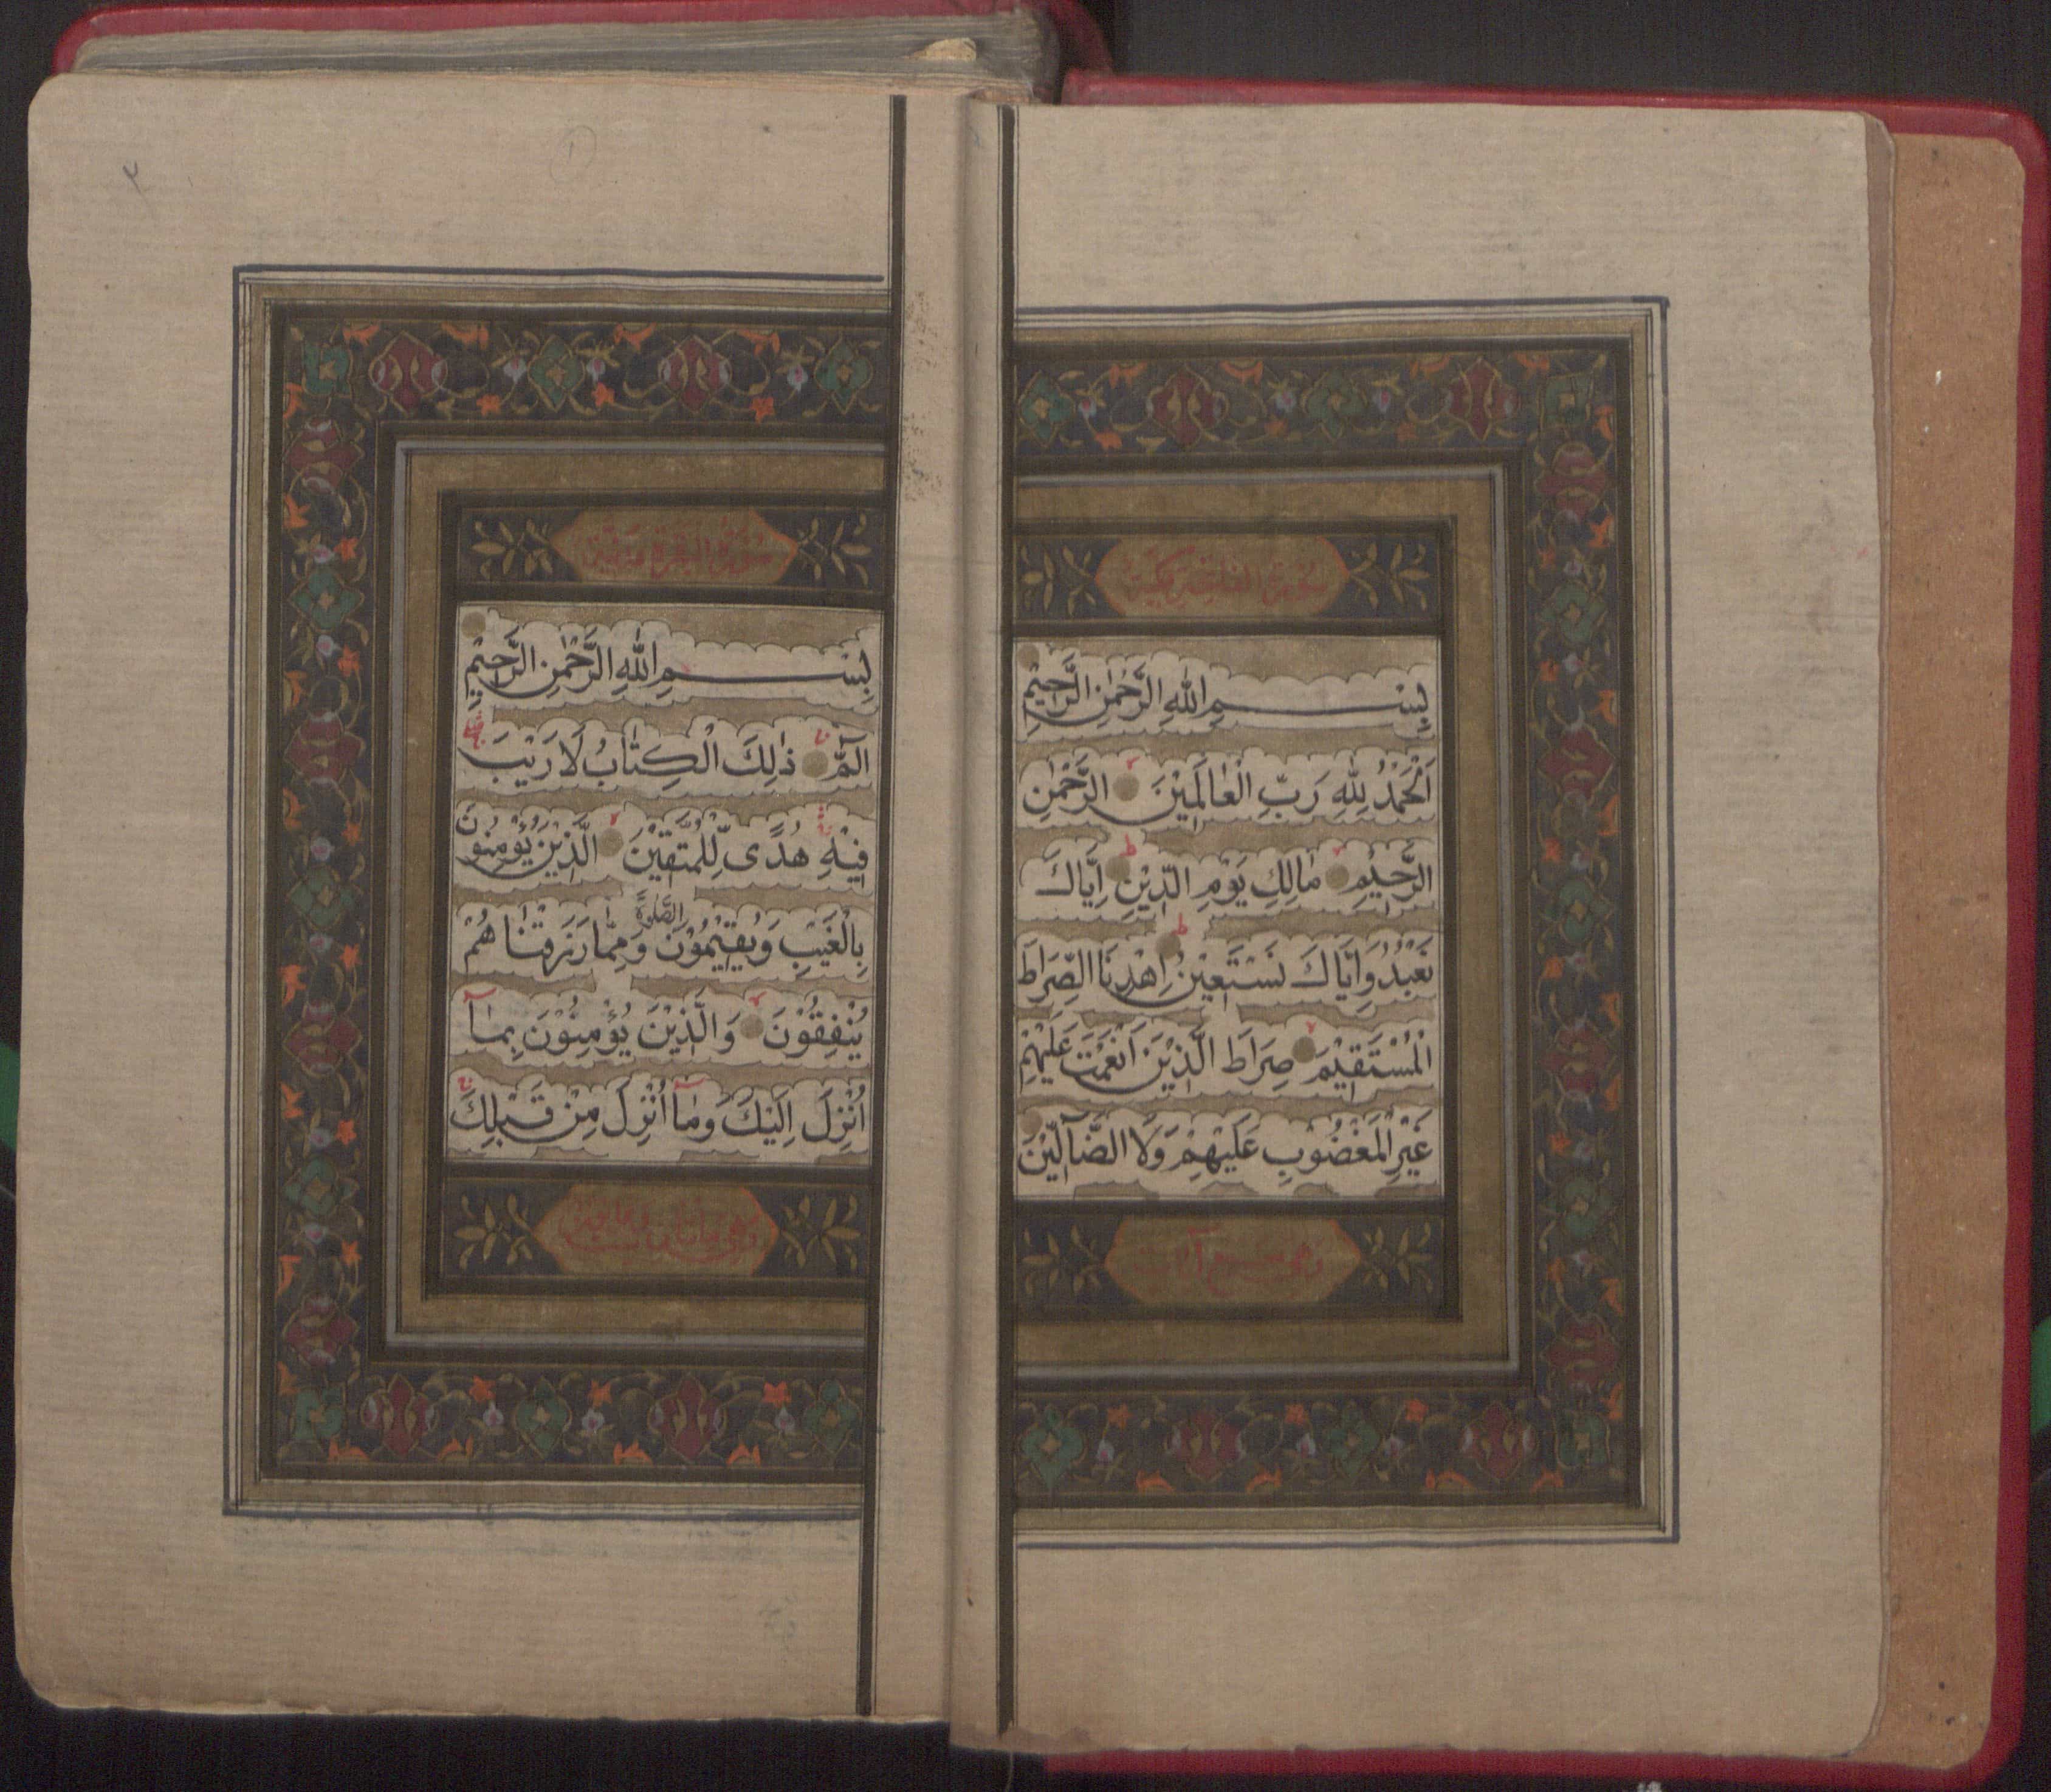 سورة الفاتحة مكية
بِسْمِ اللهِ الرَّحْمٰنِ الرَّحِيْمِ
اَلْحَمْدُ لِلّٰهِ رَبِّ الْعٰالَمِيْنَ الرَّحْمٰنِ
الرَّحِيْمِ مٰالِكِ يَوْمِ الدِّيْنِ اِيَّاكَ
نَعْبُدُ وَاِيَّاكَ نَسْتَعِيْنُ اِهْدِنَا الصِّرَاطَ
الْمُسْتَقِيْمَ صِرَاطَ الَّذِيْنَ اَنْعَمْتَ عَلَيْهِمْ
غَيْرِ الْمَغْضُوْبِ عَلَيْهِمْ وَلَا الضَّآلِّيْنَ
وهي سبع آيات
٢
سورة البقرة مدنية
بِسْمِ اللهِ الرَّحْمٰنِ الرَّحِيْمِ
الٓمّٓ ذٰلِكَ الْكِتٰابُ لَا رَيْبَ
فِيْهِ هُدًى لِّلْمُتَّقِيْنَ الَّذِيْنَ يُؤْمِنُوْنَ
بِالْغَيْبِ وَيُقِيْمُوْنَ الصَّلٰوةَ وَمِمَّا رَزَقْنٰاهُمْ
يُنْفِقُوْنَ وَالَّذِيْنَ يُؤْمِنُوْنَ بِمٰآ
اُنْزِلَ اِلَيْكَ وَمٰآ اُنْزِلَ مِنْ قَبْلِكَ